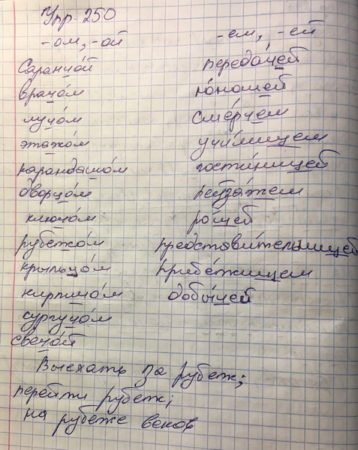 Упр. 250
-ом, -ой -ем, -ей
Саранчой передачей
врачом юношей
лучом смерчем
этажом училищем
карандашом гостиницей
дворцом пейзажем
ключом рощей
рубежом представительницей
крыльцом прибежищем
кирпичом добычей
сургучом
свечой
Выехать за рубеж;
перейти рубеж;
на рубеже веков